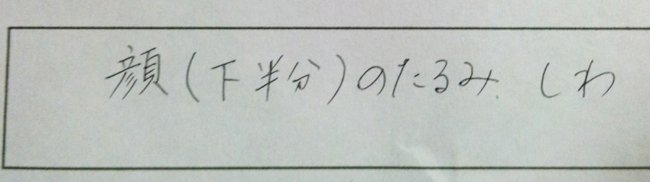 顔(下半分)のたるみ. しわ